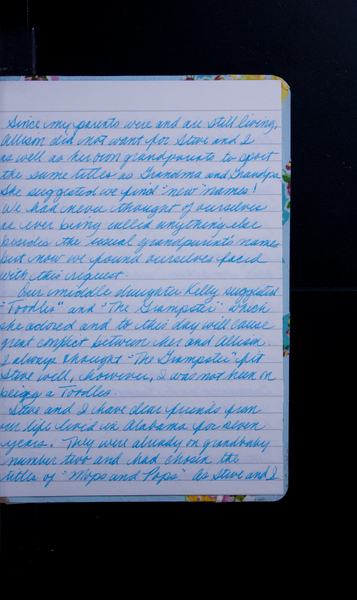 Since my parents were and are still living,
Allison did not want for Steve and I
as well as her own grandparents to sport
the same titles as Grandma and Grandpa.
She suggested we find "new" names!
We had never thought of ourselves
as ever being called anything else
besides the usual grandparents names
but now we found ourselves faced
with this request.
Our middle daughter Kelly suggested
"Toodles" and "The Grumpster" which
she adored and to this day will cause
great conflict between her and Allison.
I always thought "The Grumpster" fit
Steve well, however, I was not keen on
being a Toodles.
Steve and I have dear friends from
our life lived in Alabama for seven
years. They were already on grandbaby
number two and had chosen the
titles of "Mops and Pops" As Steve and I